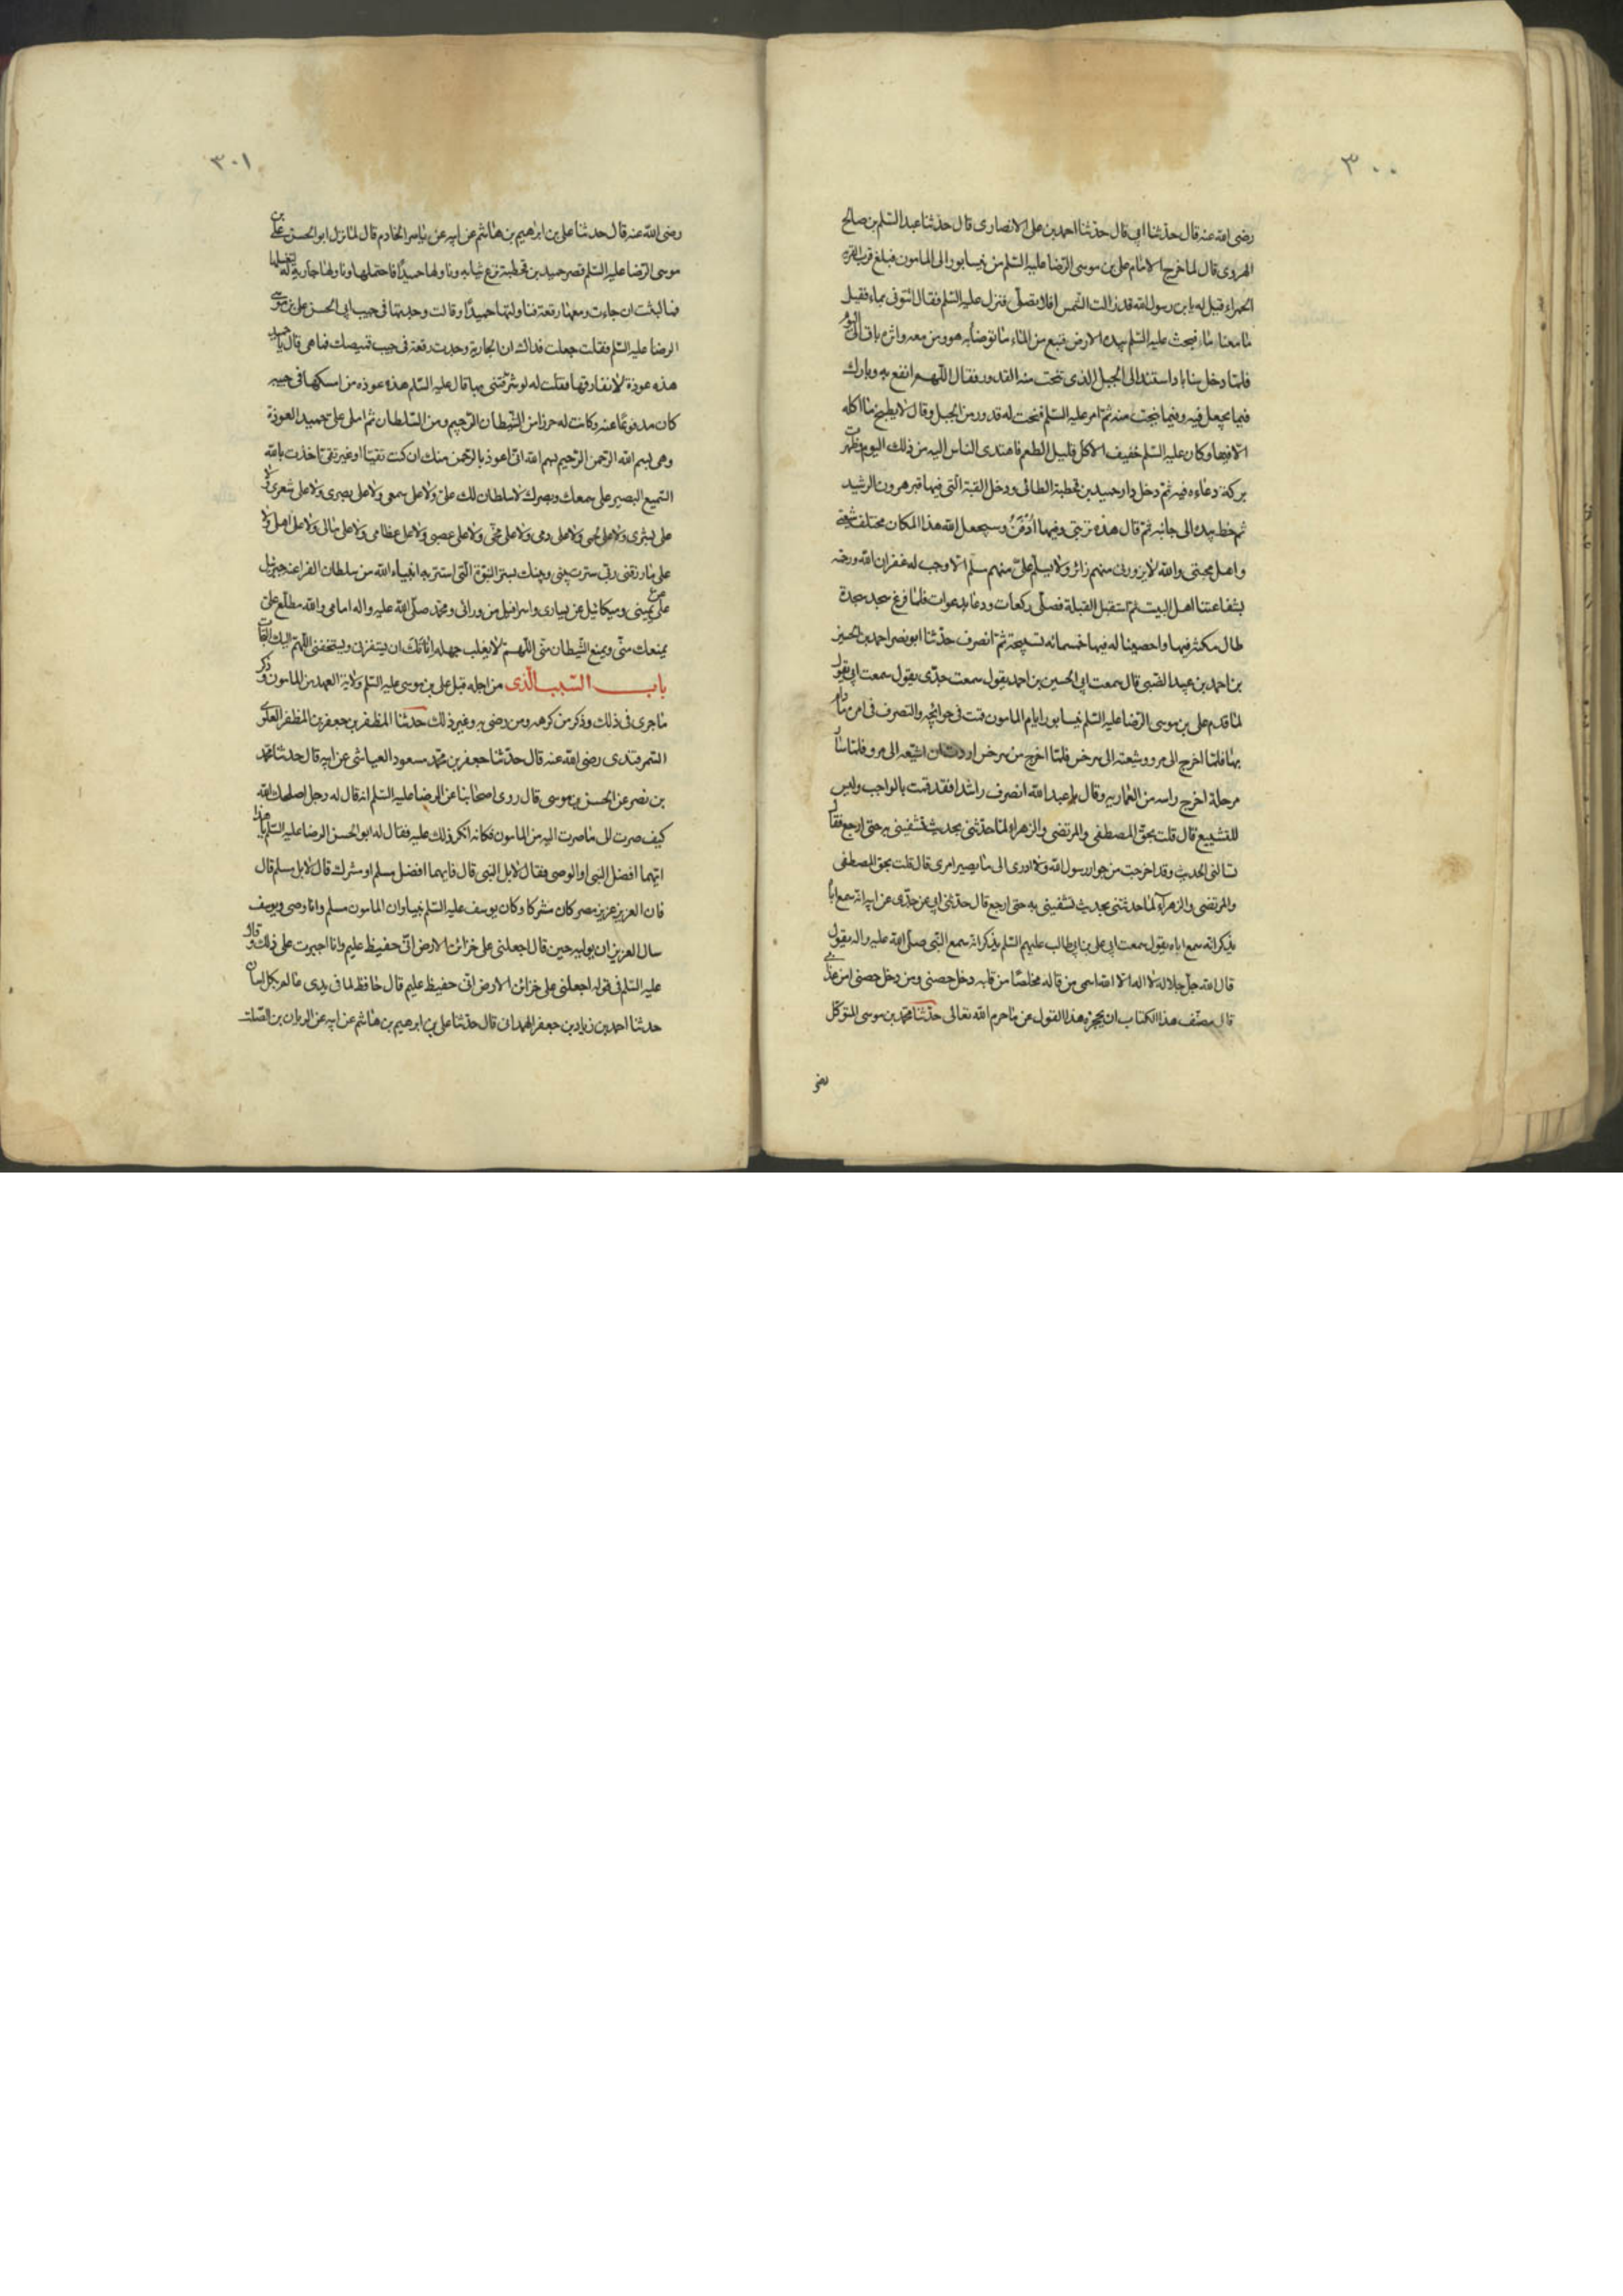 ٣٠٠
رضى الله عنه قال حدثنا ابى قال حدثنا احمد بن على الانصارى قال حدثنا عبد السلم بن صالح
الهروى قال لما خرج الامام على بن موسى الرضا عليه السلم من نيسابور الى المامون فبلغ قرب القرية
الحمراء قيل له يا بن رسول الله قد زالت الشمس افلا تصلى فنزل عليه السلم فقال ائتونى بماء فقيل
ما معنا ماء فبحث عليه السلم بيده الارض فنبع من الماء ما توضأ به هو ومن معه واثره باق الى اليوم
فلما دخل سناباد استند الى الجبل الذى تنحت منه القدور فقال اللهم انفع به وبارك
فيما يجعل فيه وفيما ينحت منه ثم امر عليه السلم فنحت له قدور من الجبل وقال لا يطبخ ما اكله
الا فيها وكان عليه السلم خفيف الاكل قليل الطعم فاهتدى الناس اليه من ذلك اليوم وظهرت
بركة دعاءه فيه ثم دخل دار حميد بن قحطبة الطائى ودخل القبة التى فيها قبر هرون الرشيد
ثم خط بيده الى جانبه ثم قال هذه تربتى وفيها ادفن وسيجعل الله هذا المكان مختلف شيعتى
واهل محبتى والله لا يزورنى منهم زائر ولا يسلم على منهم مسلم الا وجب له غفران الله ورحمته
بشفاعتنا اهل البيت ثم استقبل القبلة فصلى ركعات ودعا بدعوات فلما فرغ سجد سجدة
طال مكثه فيها واحصينا له فيها خمسمائه تسبيحة ثم انصرف حدثنا ابو نصر احمد بن الحسين
بن احمد بن عبيد الضبى قال سمعت ابى الحسين بن احمد يقول سمعت جدى يقول سمعت ابى يقول
لما قدم على بن موسى الرضا عليه السلم نيسابور ايام المامون قمت فى حوائجه والتصرف فى امره ما دام
بها فلما خرج الى مرو وشيعته الى سرخس فلما اخرج من سرخس اردت ان اشيعه الى مرو فلما سار
مرحلة اخرج راسه من العمارية وقال يا عبد الله انصرف راشدا فقد قمت بالواجب وليس
للتشييع قال قلت بحق المصطفى والمرتضى والزهراء لما حدثتنى بحديث تشفينى به حتى ارجع فقال
تسالنى الحديث وقد اخرجت من جوار رسول الله ولا ادرى الى ما يصير امرى قال قلت بحق المصطفى
والمرتضى والزهراء لما حدثتنى بحديث تشفينى به حتى ارجع قال حدثنى ابى عن جدى عن ابيه انه سمع اباه
يذكر انه سمع اباه يقول سمعت ابى على بن ابيطالب عليهم السلم يذكر انه سمع النبى صلى الله عليه واله يقول
قال الله جل جلاله لا اله الا الله اسمى من قاله مخلصا من قلبه دخل حصنى ومن دخل حصنى امن عذابى
قال مصنف هذا الكتاب ان يحجزه هذا القول عن ما حرم الله تعالى حدثنا محمد بن موسى المتوكل
رضى
٣٠١
رضى الله عنه قال حدثنا على بن ابرهيم بن هاشم عن ابيه عن ياسر الخادم قال لما نزل ابو الحسن على بن
موسى الرضا عليه السلم قصر حميد بن قحطبة نزع ثيابه وناولها حميدا فاحتملها وناولها جارية له لتغسلها
فما لبثت ان جاءت ومعها رقعة فناولتها حميدا وقالت وجدتها فى جيب ابى الحسن على بن موسى
الرضا عليه السلم فقلت جعلت فداك ان الجارية وجدت رقعة فى جيب قميصك فما هى قال يا حميد
هذه عوذة لا نفارقها فقلت له لو شرفتنى بها قال عليه السلم هذه عوذه من امسكها فى جيبه
كان مدفوعا عنه وكانت له حرزا من الشيطان الرجيم ومن السلطان ثم املى على حميد العوذة
وهى بسم الله الرحمن الرحيم بسم الله انى اعوذ بالرحمن منك ان كنت تقيا او غير تقى اخذت بالله
السميع البصير على سمعك وبصرك لا سلطان لك على ولا على سمعى ولا على بصرى ولا على شعرى ولا
على بشرى ولا على لحمى ولا على دمى ولا على مخى ولا على عصبى ولا على عظامى ولا على مالى ولا على اهلى ولا
على ما رزقنى ربى سترت بينى وبينك بستر النبوة التى استتر بها انبياء الله من سلطان الفراعنه جبرئيل
عن يمينى وميكائيل عن يسارى واسرافيل من ورائى ومحمد صلى الله عليه واله امامى والله مطلع على
يمنعك منى ويمنع الشيطان منى اللهم لا يغلب جهله اناتك ان يستفزنى ويستخفنى اللهم اليك التجات
باب السبب الذى من اجله قبل على بن موسى عليه السلم ولاية العهد من المامون وذكر
ما جرى فى ذلك وذكر من كرهه ومن رضى به وغير ذلك حدثنا المظفر بن جعفر بن المظفر العلوى
السمرقندى رضى الله عنه قال حدثنا جعفر بن محمد مسعود العياشى عن ابيه قال حدثنا محمد
بن نصر عن الحسن بن موسى قال روى اصحابنا عن الرضا عليه السلم انه قال له رجل اصلحك الله
كيف صرت الى ما صرت اليه من المامون فكانه انكر ذلك عليه فقال له ابو الحسن الرضا عليه السلم يا هذا
ايهما افضل النبى او الوصى فقال لا بل النبى قال فايهما افضل مسلم او مشرك قال لا بل مسلم قال
فان العزيز عزيز مصر كان مشركا وكان يوسف عليه السلم نبيا وان المامون مسلم وانا وصى ويوسف
سال العزيز ان يوليه حين قال اجعلنى على خزائن الارض انى حفيظ عليم وانا اجبرت على ذلك وقال
عليه السلم فى قوله اجعلنى على خزائن الارض انى حفيظ عليم قال حافظ لما فى يدى عالم بكل لسان
حدثنا احمد بن زياد بن جعفر الهمدانى قال حدثنا على بن ابرهيم بن هاشم عن ابيه عن الريان بن الصلت